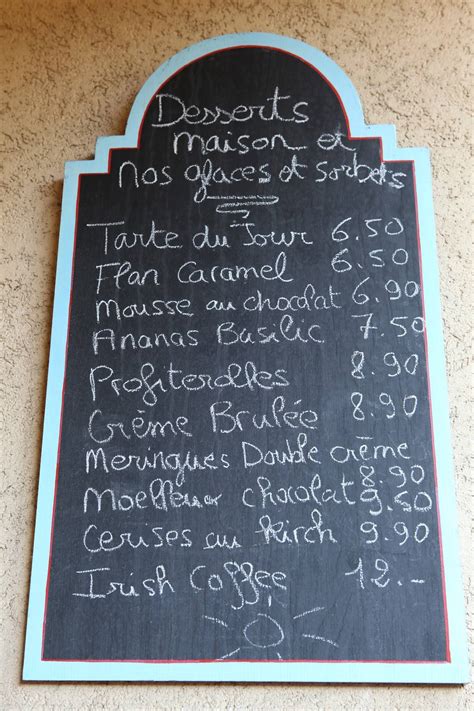 Desserts
maison et
Nos glaces et sorbets
Tarte du Jour 6.50
Flan Caramel 6.50
Mousse au chocolat 6.90
Ananas Basilic 7.50
Profiterolles 8.90
Crème Brulée 8.90
Meringues Double crème
8.90
Moelleux chocolat 9.50
Cerises au Kirch 9.90
Irish Coffee 12.-